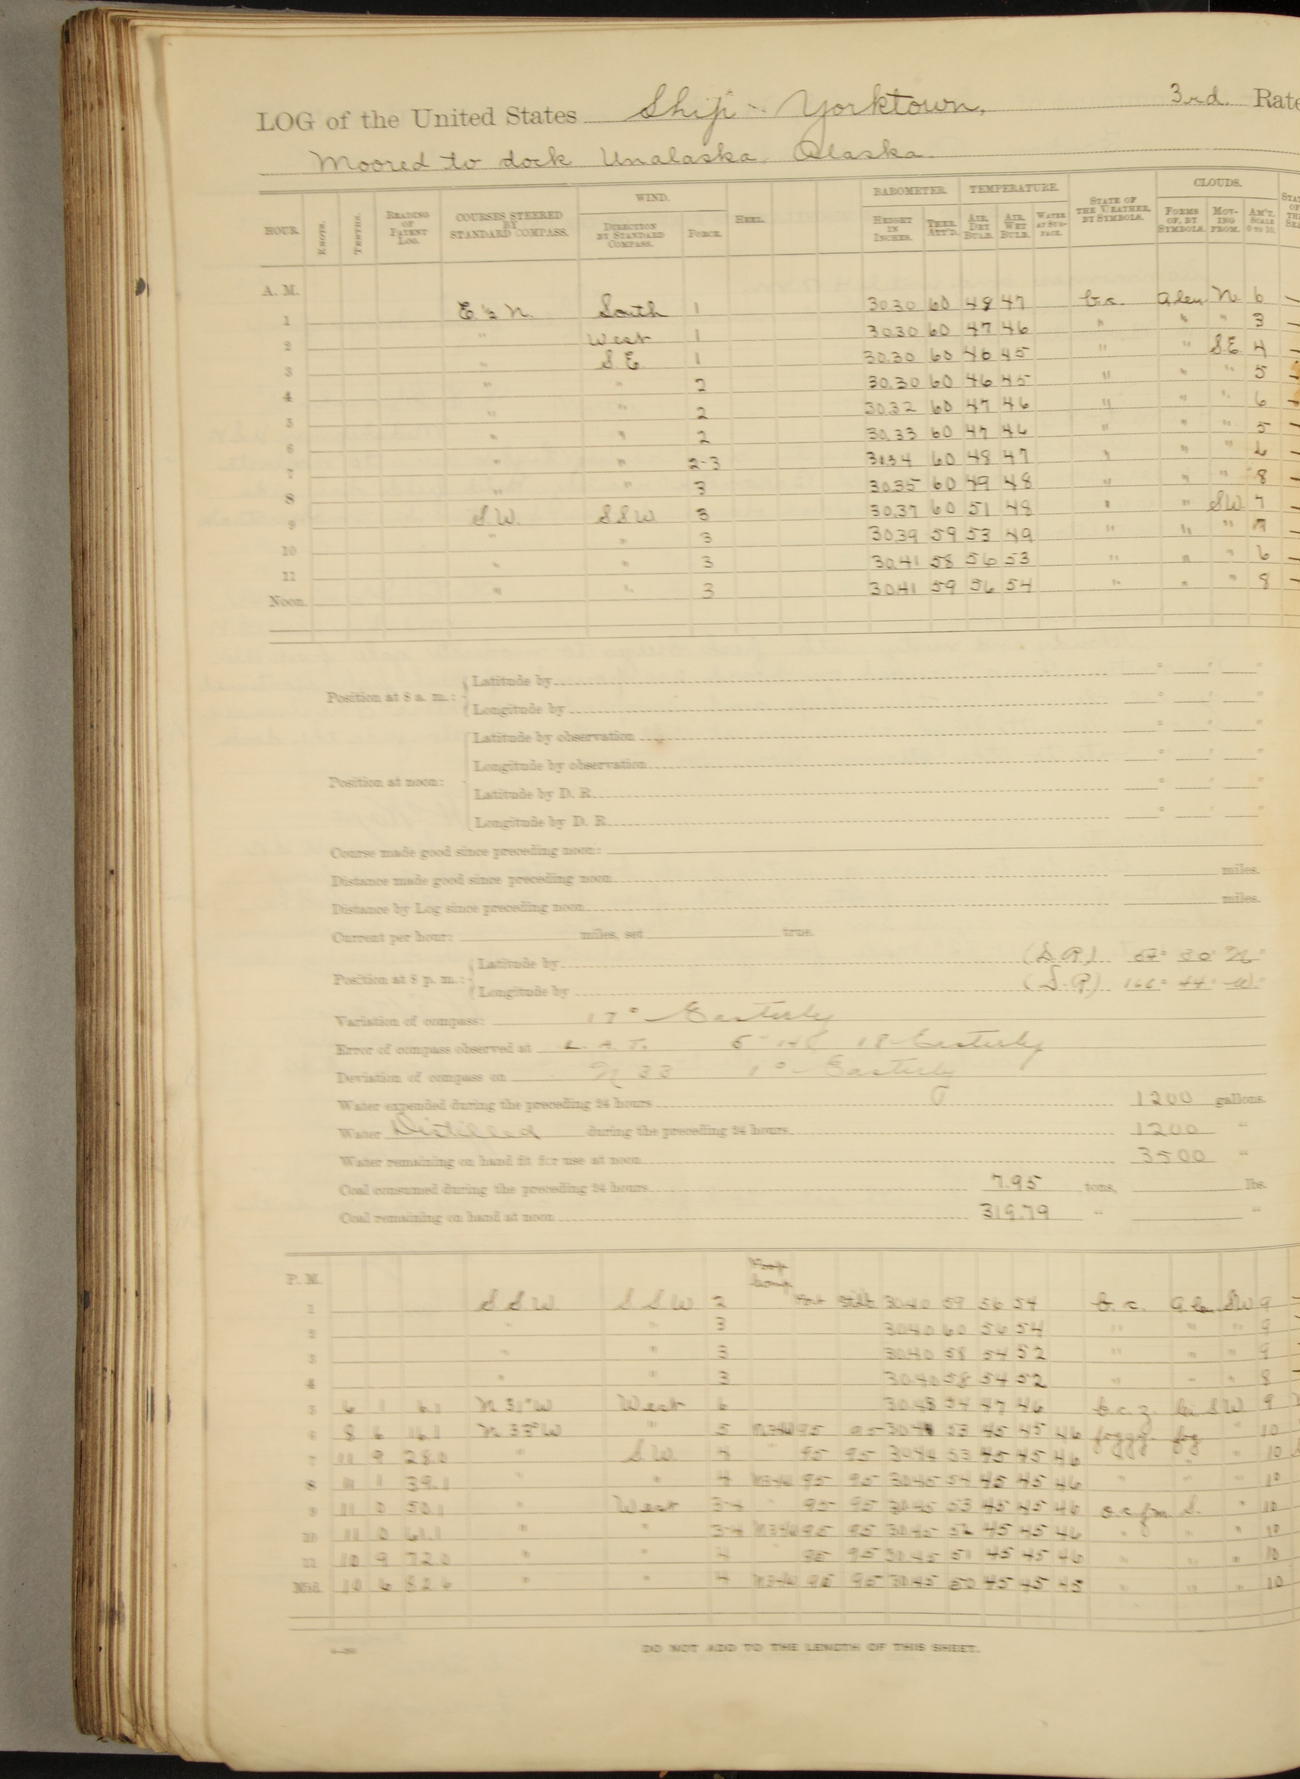 LOG of the United States Ship Yorktown, 3rd. Rate
Moored to dock Unalaska, Alaska.
HOUR. KNOTS. TENTHS. READING OF PATENT LOG. COURSES STEERED BY STANDARD COMPASS. WIND. DIRECTION BY STANDARD COMPASS. FORCE. HEEL. BAROMETER. HEIGHT IN INCHES. THER. ATT'D. TEMPERATURE. AIR, DRY BULB. AIR, WET BULB. WATER AT SURFACE. STATE OF THE WEATHER, BY SYMBOLS. CLOUDS. FORMS OF, BY SYMBOLS. MOVING FROM. AM'T. SCALE 0 TO 10.
A. M.
1 South 1 30.30 60 48 47 b.c. N. 6
2 " West 1 30.30 60 47 46 " " " 3
3 " S E 1 30.30 60 46 45 " " S.E. 4
4 " " 2 30.30 60 46 45 " " " 5
5 " " 2 30.32 60 47 46 " " " 6
6 " " 2 30.33 60 47 46 " " " 5
7 " " 2-3 30.34 60 48 47 " " " 6
8 " " 3 30.35 60 49 48 " " " 8
9 S.W. S S W 3 30.37 60 51 48 " " SW. 7
10 " " 3 30.39 59 53 49 " " " 7
11 " " 3 30.41 58 56 53 " " " 6
Noon. " " 3 30.41 59 56 54 " " " 8
Position at 8 a. m.: Latitude by
Longitude by
Position at noon: Latitude by observation
Longitude by observation
Latitude by D. R.
Longitude by D. R.
Course made good since preceding noon:
Distance made good since preceding noon miles.
Distance by Log since preceding noon miles.
Current per hour: miles, set true.
Position at 8 p. m.: Latitude by (D.R.) 30 N
Longitude by (D.R.) 166 44 W
Variation of compass: 17° Easterly
Error of compass observed at L. A. T. 18 Easterly
Deviation of compass on N 33 1° Easterly
Water expended during the preceding 24 hours 1200 gallons.
Water Distilled during the preceding 24 hours 1200 "
Water remaining on hand fit for use at noon 3500 "
Coal consumed during the preceding 24 hours 7.95 tons, lbs.
Coal remaining on hand at noon 319.79 " "
P. M.
1 S S W S S W 2 30.40 59 56 54 b. c. SW 9
2 " " 3 30.40 60 56 54 " " " 9
3 " " 3 30.40 58 54 52 " " " 9
4 " " 3 30.40 58 54 52 " " " 8
5 6 1 6.1 N 31° W West 6 54 47 46 S W 9
6 8 6 16.1 N 33° W " 5 95 95 53 45 45 46 foggy fog " 10
7 11 9 28.0 " S W. 4 " 95 95 30.44 53 45 45 46 " " 10
8 11 1 39.1 " " 4 95 95 30.45 54 45 45 46 " " " 10
9 11 0 50.1 " West 3-4 " 95 95 30.45 53 45 45 46 S. " 10
10 11 0 61.1 " " 3-4 95 95 30.45 52 45 45 46 " " " 10
11 10 9 72.0 " " 4 95 95 30.45 51 45 45 46 " " " 10
Mid. 10 6 82.6 " " 4 95 95 30.45 50 45 45 45 " " " 10
DO NOT ADD TO THE LENGTH OF THIS SHEET.